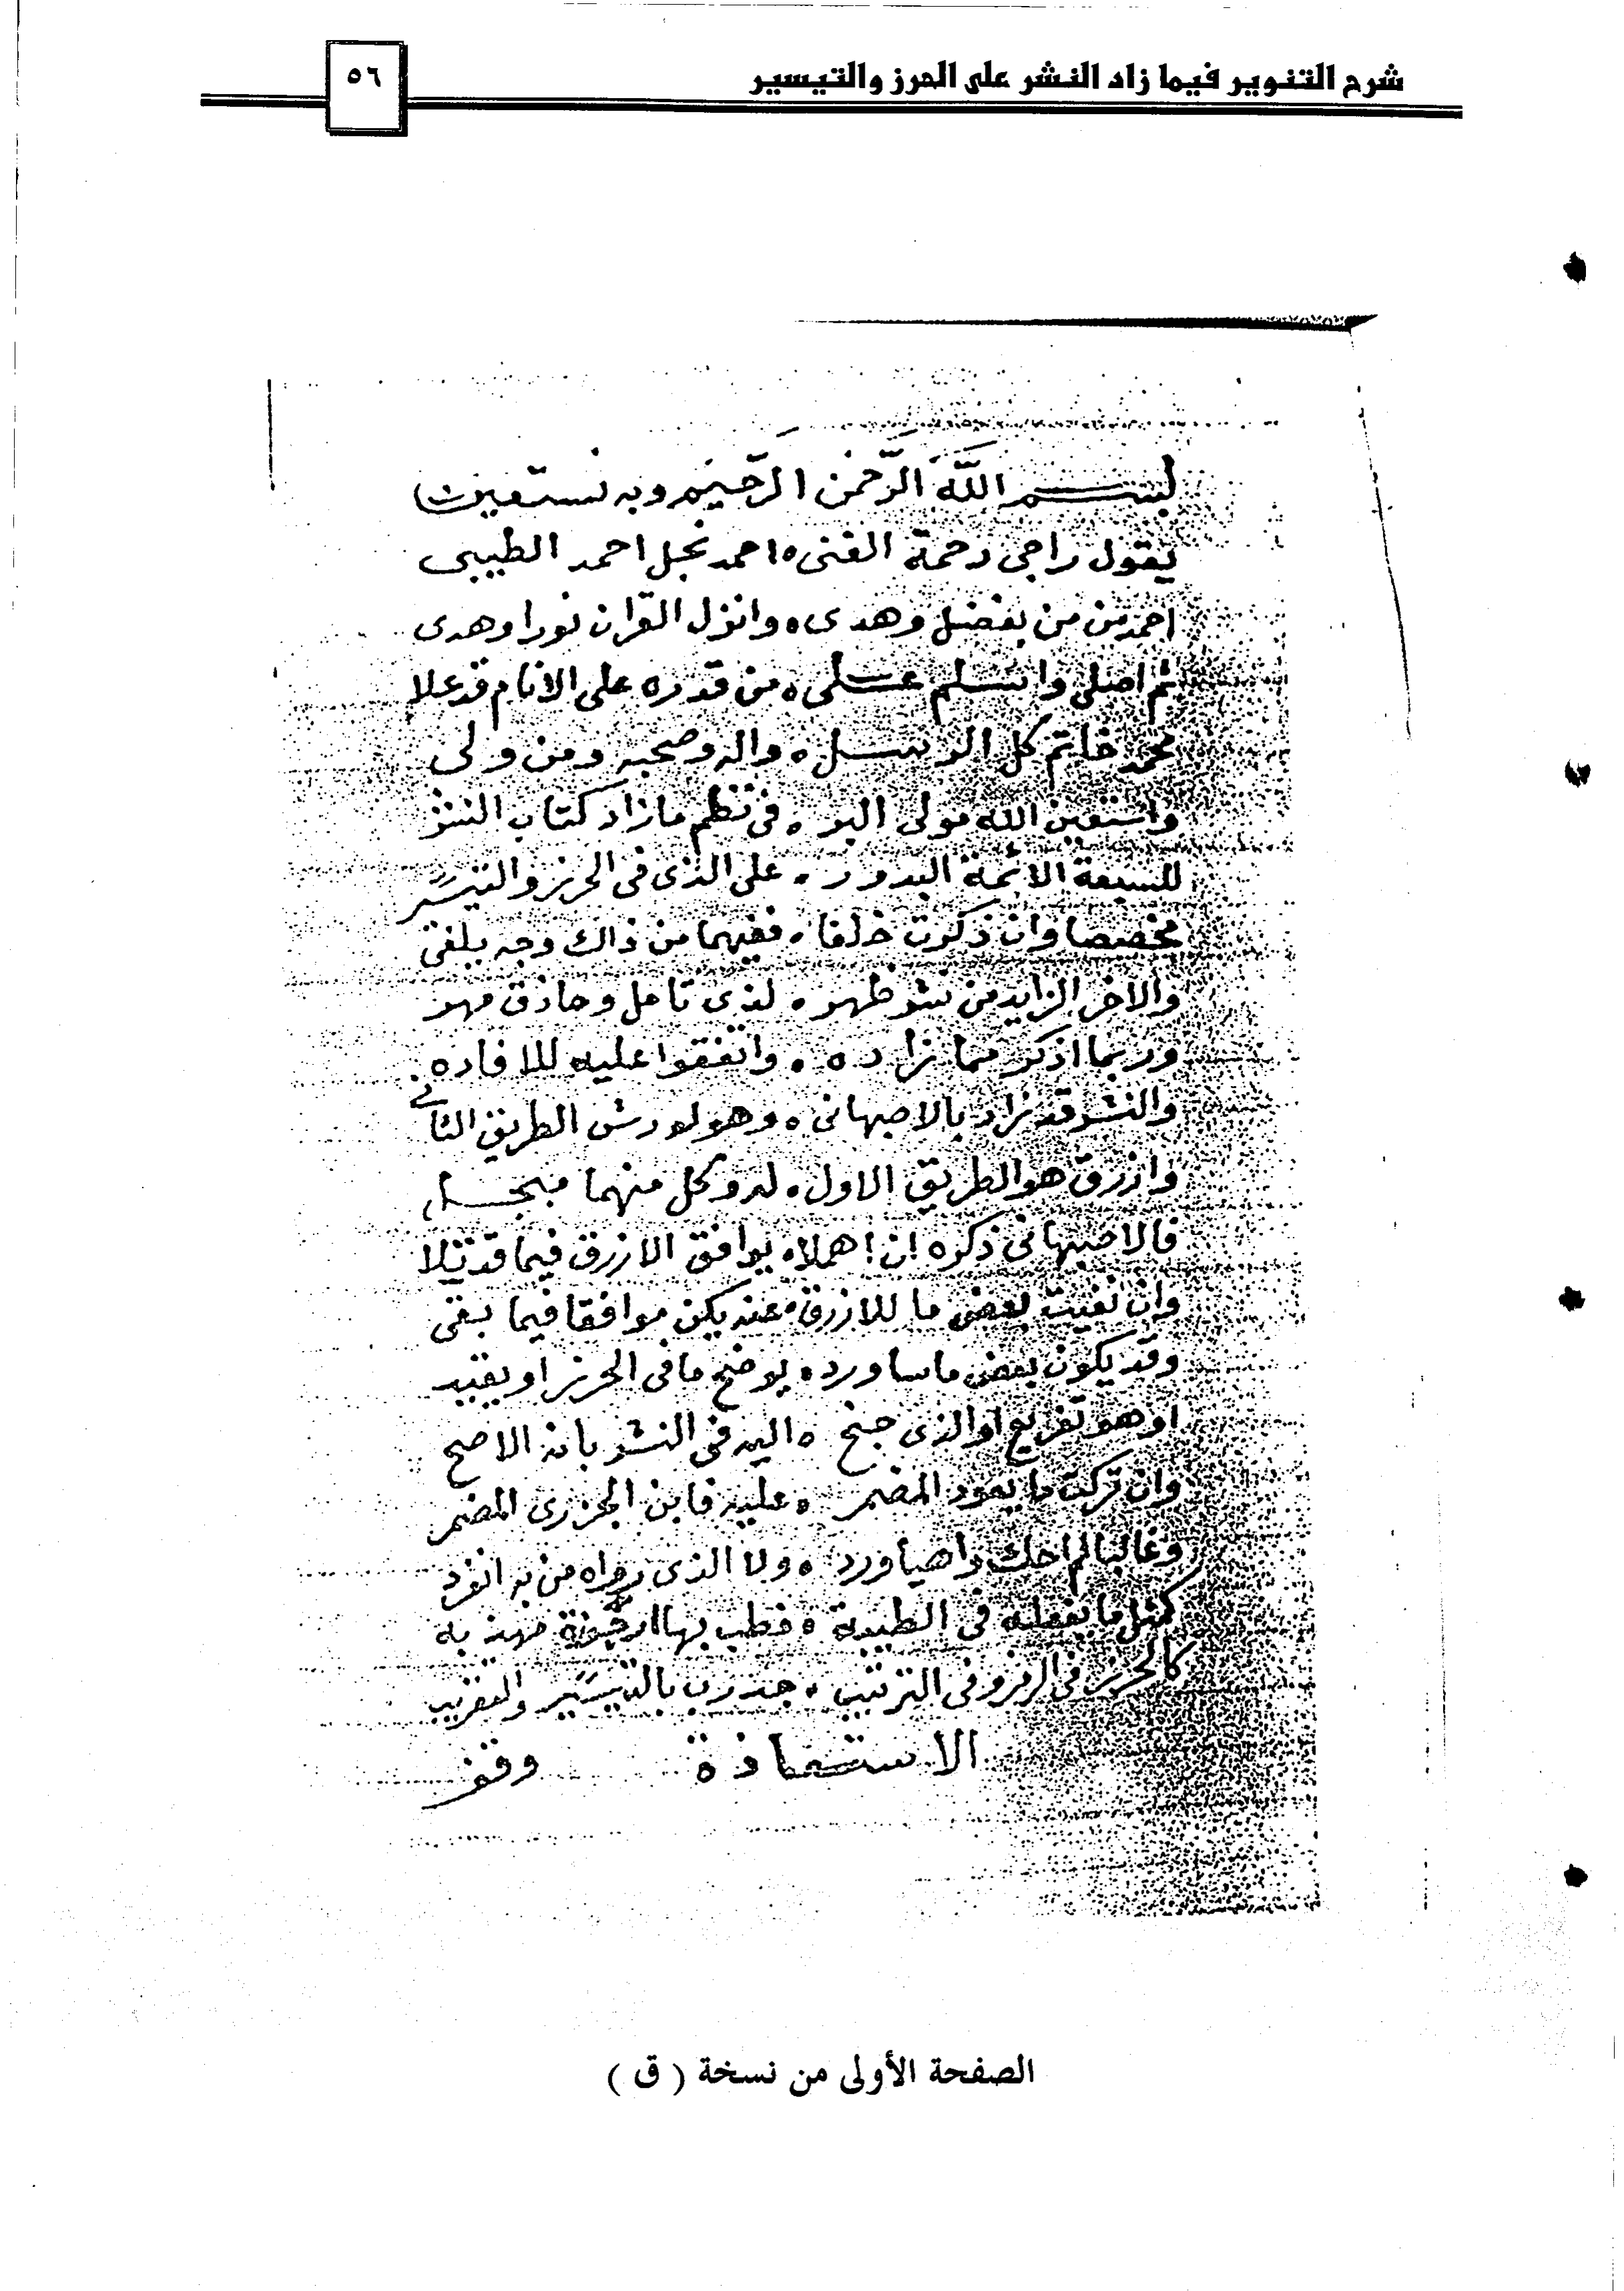 شرح التنوير فيما زاد النشر على الحرز والتيسير
٥٦
بسم الله الرحمن الرحيم وبه نستعين
يقول راجى رحمة الغنى ه احمد نجل احمد الطيبى
احمد من من بفضل وهدى ه وانزل القران نورا وهدى
ثم اصلى واسلم على ه من قدره على الانام قد علا
محمد خاتم كل الرسل ه واله وصحبه ومن ولى
واستعين الله مولى البر ه فى نظم ما زاد كتاب النشر
للسبعة الائمة البدور ه على الذى فى الحرز والتيسير
مخصصا وان ذكرت خلفا ه ففيهما من ذاك وجه يلفى
والاخر الزايد من نشر ظهر ه لذى تامل وحاذق مهر
وربما اذكر مما زاده ه واتفقوا عليه للافاده
والنشر قد زاد بالاصبهانى ه وهو لورش الطريق الثانى
وازرق هو الطريق الاول ه له وكل منهما مبجل
فالاصبهانى ذكره ان اهملا ه يوافق الازرق فيما قد تلا
وان نفيت بعض ما للازرق ه عنه يكن موافقا فيما بقى
وقد يكون بعض ما ساورد ه يوضح ما فى الحرز او يقيد
او هو تفريع او الذى جنح ه اليه فى النشر بانه الاصح
وان تركت ما يعود المضمر ه عليه فابن الجزرى المضمر
وغالبا لم احك واهيا ورد ه ولا الذى رواه من به انفرد
كمثل ما يفعله فى الطيبة ه فطب بها ارجوزة مهذبه
كالحرز فى الرمز وفى الترتيب ه جدرت بالتيسير والتقريب
الاستعاذة
وقف
الصفحة الأولى من نسخة ( ق )